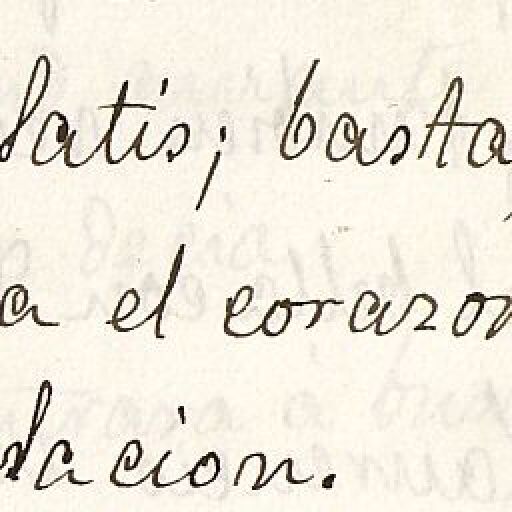 latis; basta,
a el corazon
lacion.